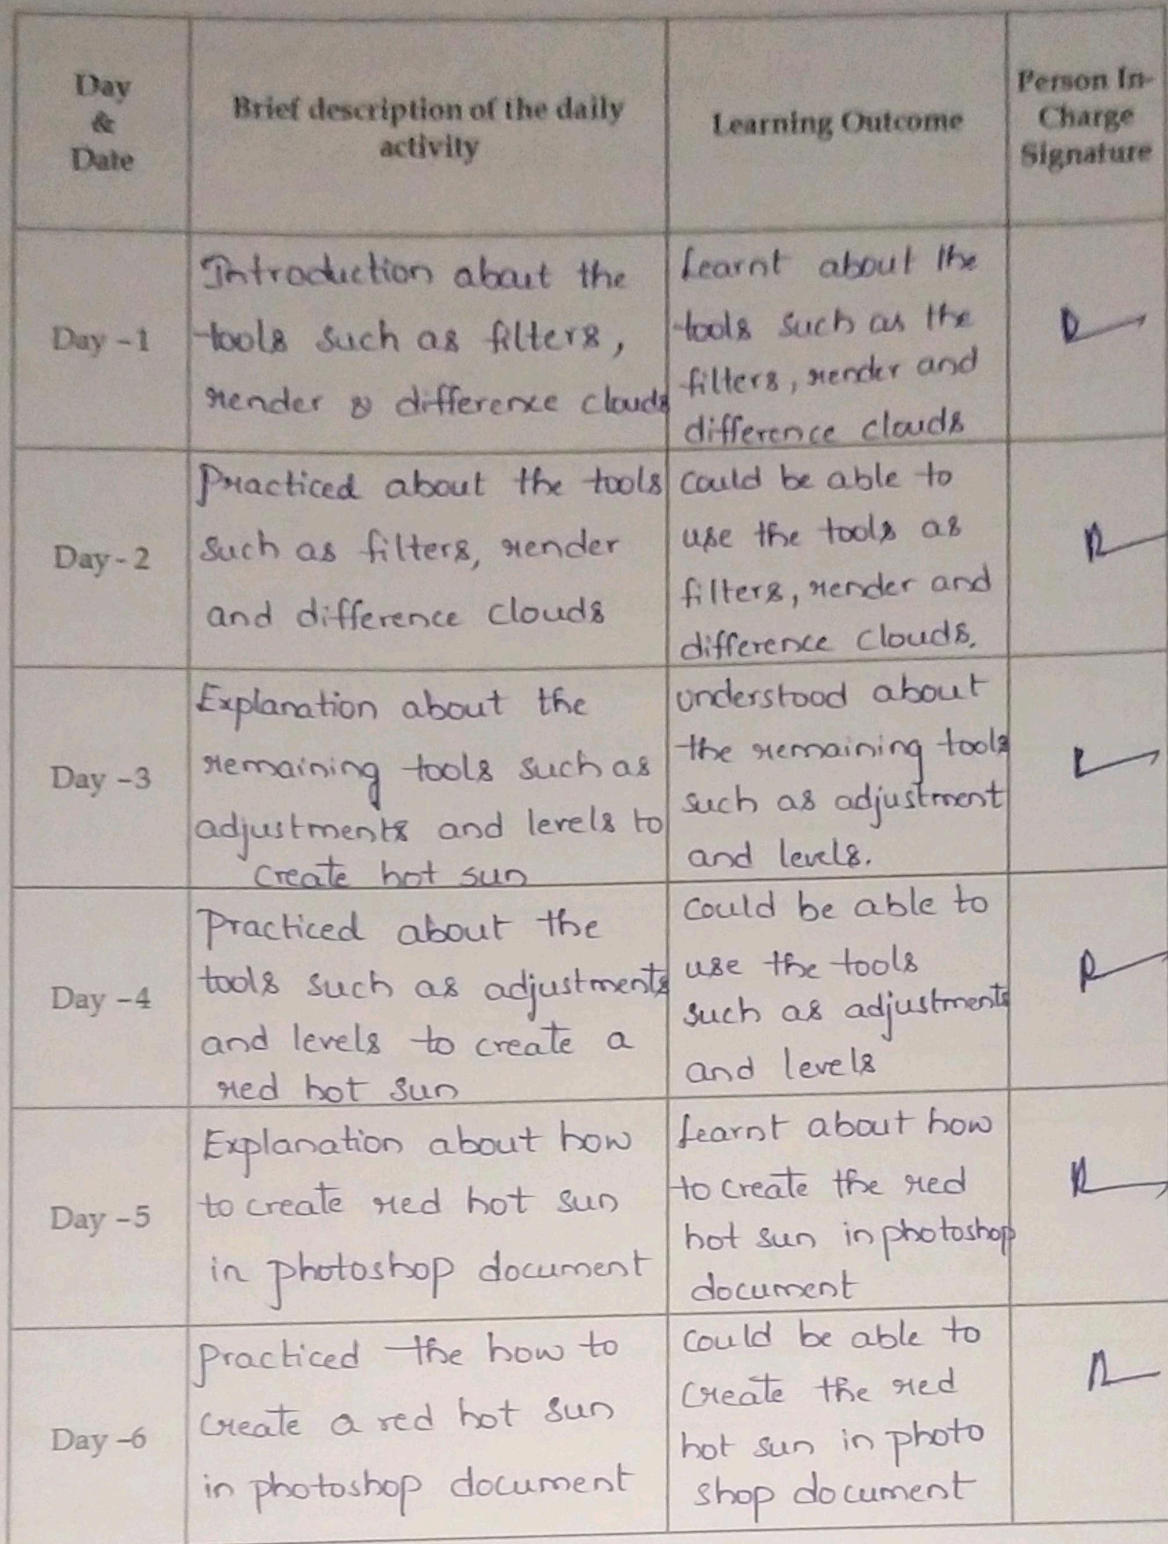 Day
&
Date
Brief description of the daily
activity
Learning Outcome
Person In-
Charge
Signature
Day -1
Introduction about the
tools such as filters,
render & difference clouds
Learnt about the
tools such as the
filters, render and
difference clouds
Day-2
Practiced about the tools
such as filters, render
and difference clouds
could be able to
use the tools as
filters, render and
difference clouds.
Day -3
Explanation about the
remaining tools such as
adjustments and levels to
create hot sun
understood about
the remaining tools
such as adjustment
and levels.
Day -4
Practiced about the
tools such as adjustments
and levels to create a
red hot sun
could be able to
use the tools
such as adjustments
and levels
Day -5
Explanation about how
to create red hot sun
in photoshop document
Learnt about how
to create the red
hot sun in photoshop
document
Day -6
practiced the how to
create a red hot sun
in photoshop document
could be able to
create the red
hot sun in photo
shop document